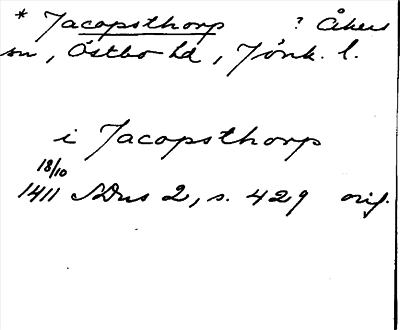 * Jacopsthorp ? Åkers
sn, Östbo hd, Jönk. l.
i Jacopsthorp
18/10
1411 SDns 2, s. 429 orig.